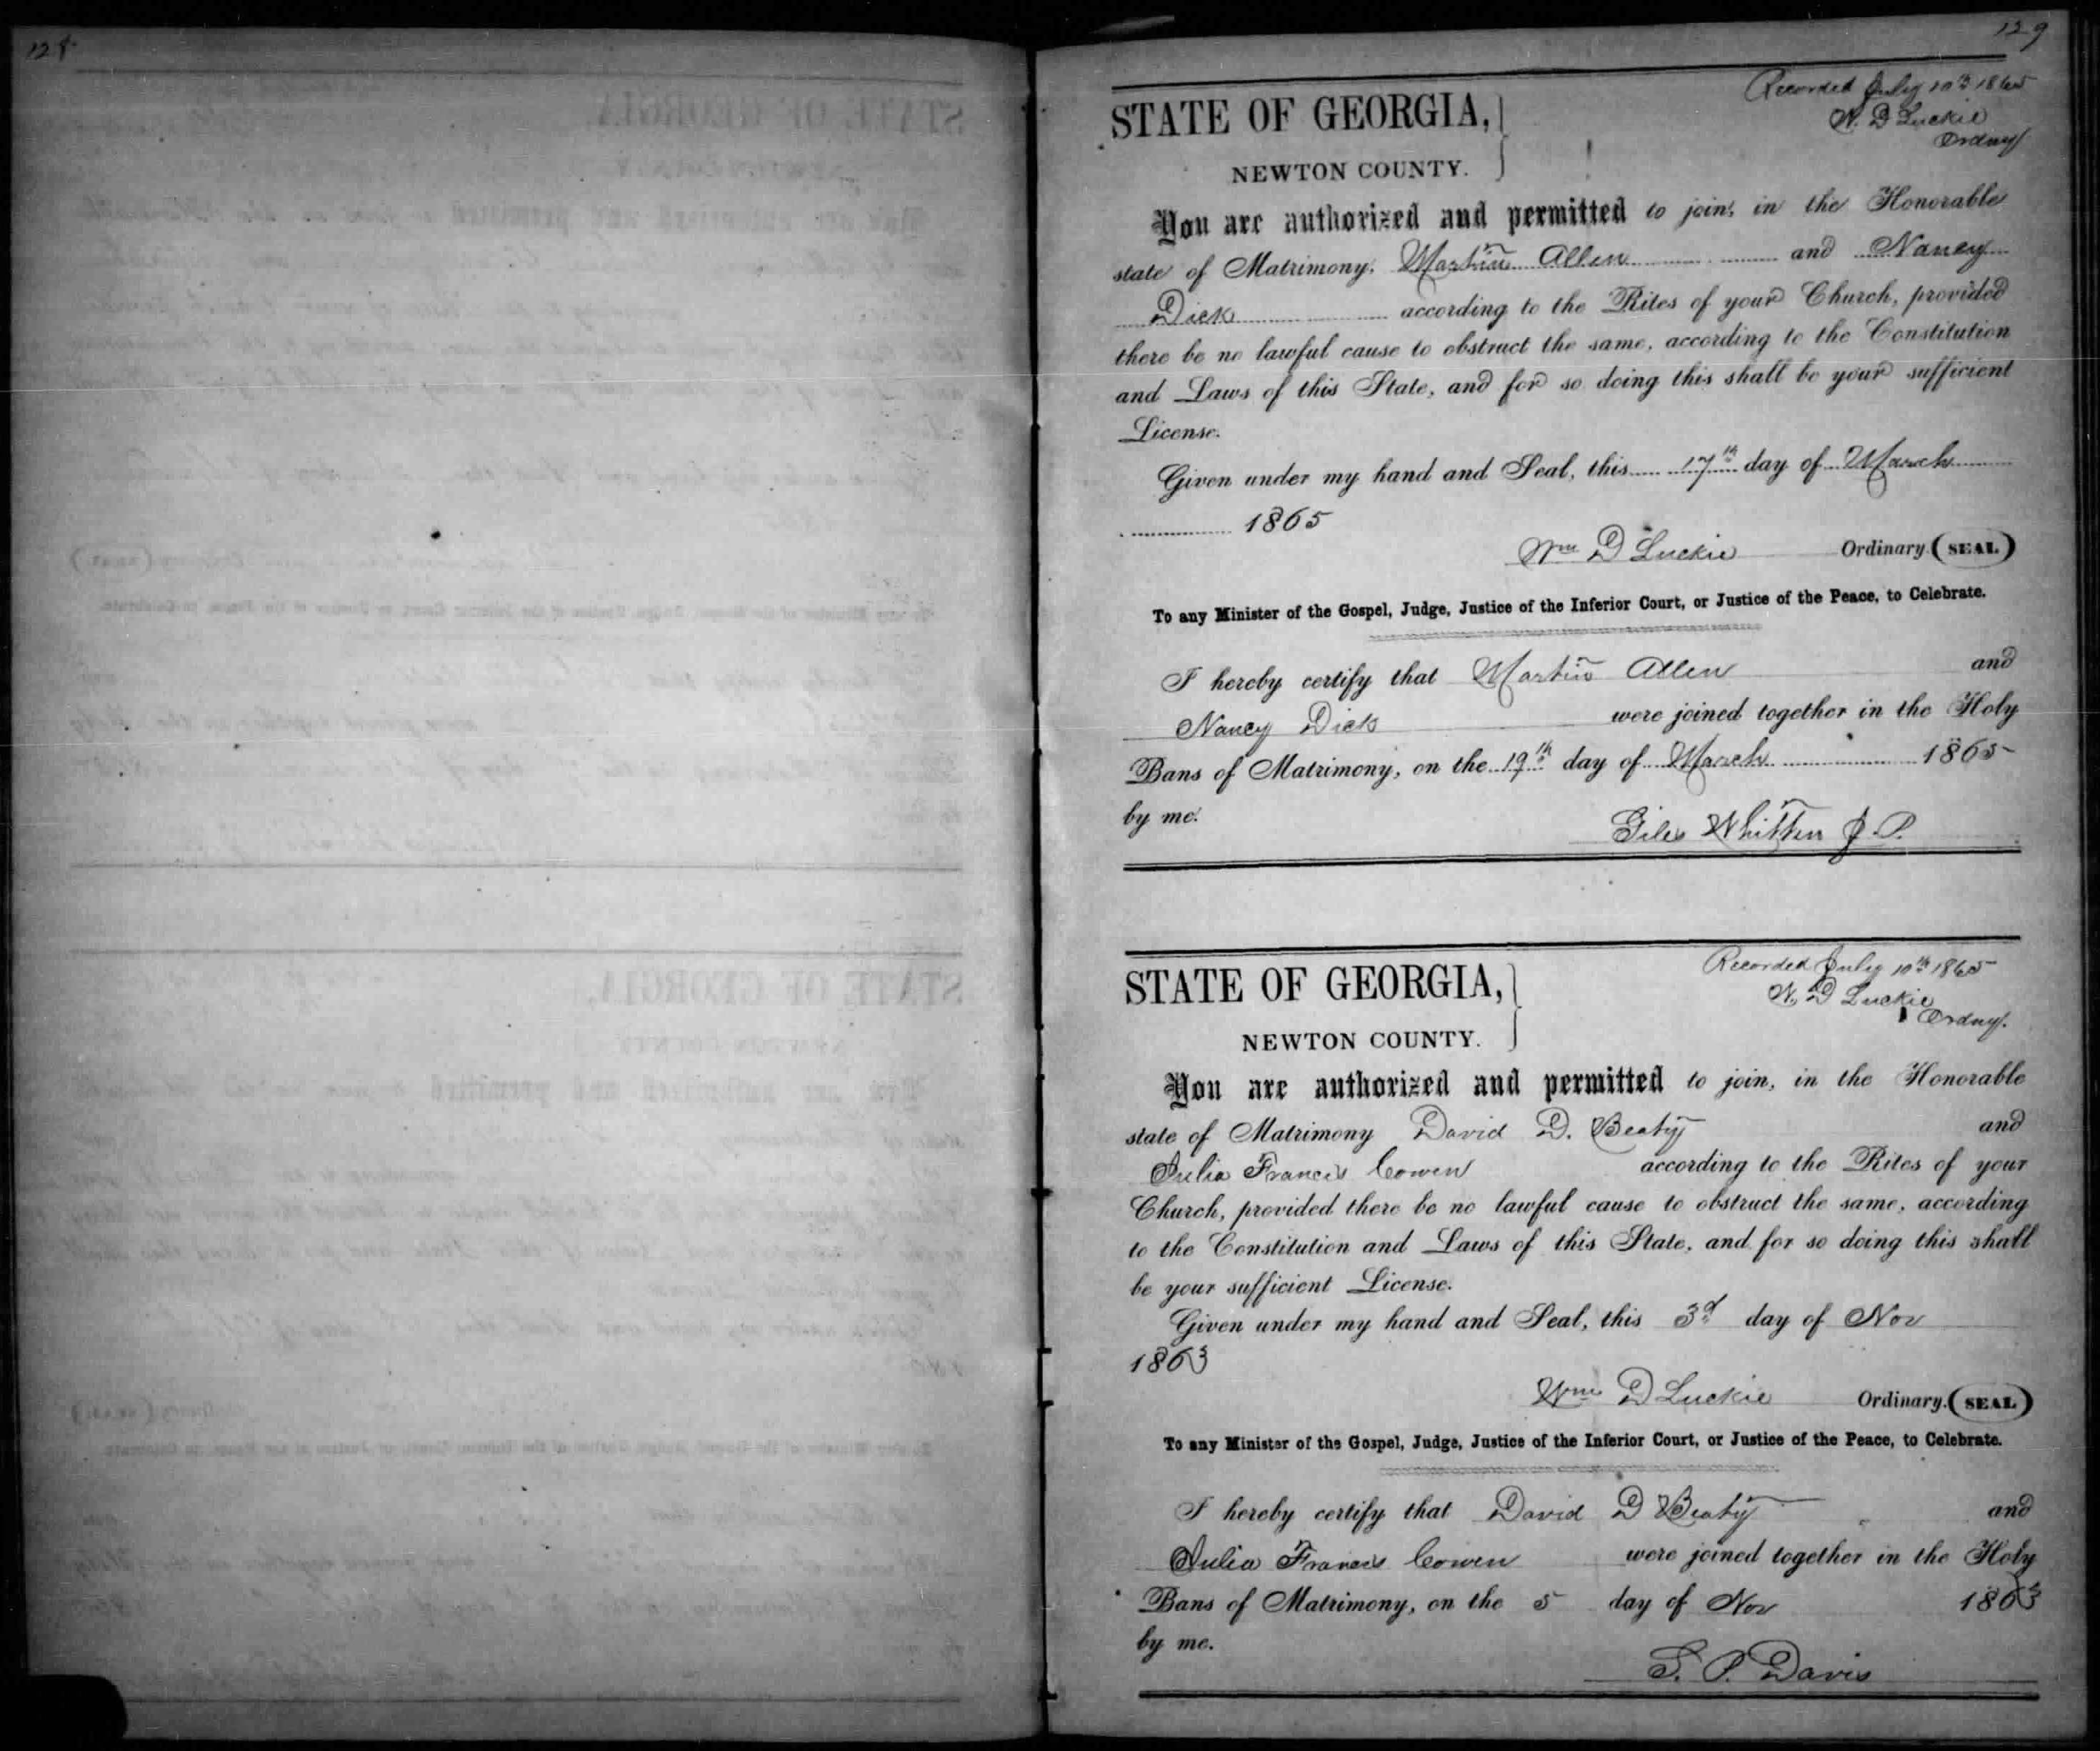 128
129
Recorded July 10th 1865
W. D Luckie
Ordny
STATE OF GEORGIA,
NEWTON COUNTY.
You are authorized and permitted to join, in the Honorable
state of Matrimony, Martin Allen and Nancy
Dick according to the Rites of your Church, provided
there be no lawful cause to obstruct the same, according to the Constitution
and Laws of this State, and for so doing this shall be your sufficient
License.
Given under my hand and Seal, this 17th day of March
1865
Wm D Luckie Ordinary (SEAL)
To any Minister of the Gospel, Judge, Justice of the Inferior Court, or Justice of the Peace, to Celebrate.
I hereby certify that Martin Allen and
Nancy Dick were joined together in the Holy
Bans of Matrimony, on the 19th day of March 1865
by me.
Giles Whitten J. P.
Recorded July 10th 1865
W. D Luckie
Ordny.
STATE OF GEORGIA,
NEWTON COUNTY.
You are authorized and permitted to join, in the Honorable
state of Matrimony David D. Beaty and
Julia Francis Cowen according to the Rites of your
Church, provided there be no lawful cause to obstruct the same, according
to the Constitution and Laws of this State, and for so doing this shall
be your sufficient License.
Given under my hand and Seal, this 3d day of Nov
1863
Wm D Luckie Ordinary. (SEAL)
To any Minister of the Gospel, Judge, Justice of the Inferior Court, or Justice of the Peace, to Celebrate.
I hereby certify that David D Beaty and
Julia Francis Cowen were joined together in the Holy
Bans of Matrimony, on the 5 day of Nov 1863
by me.
S. P. Davis